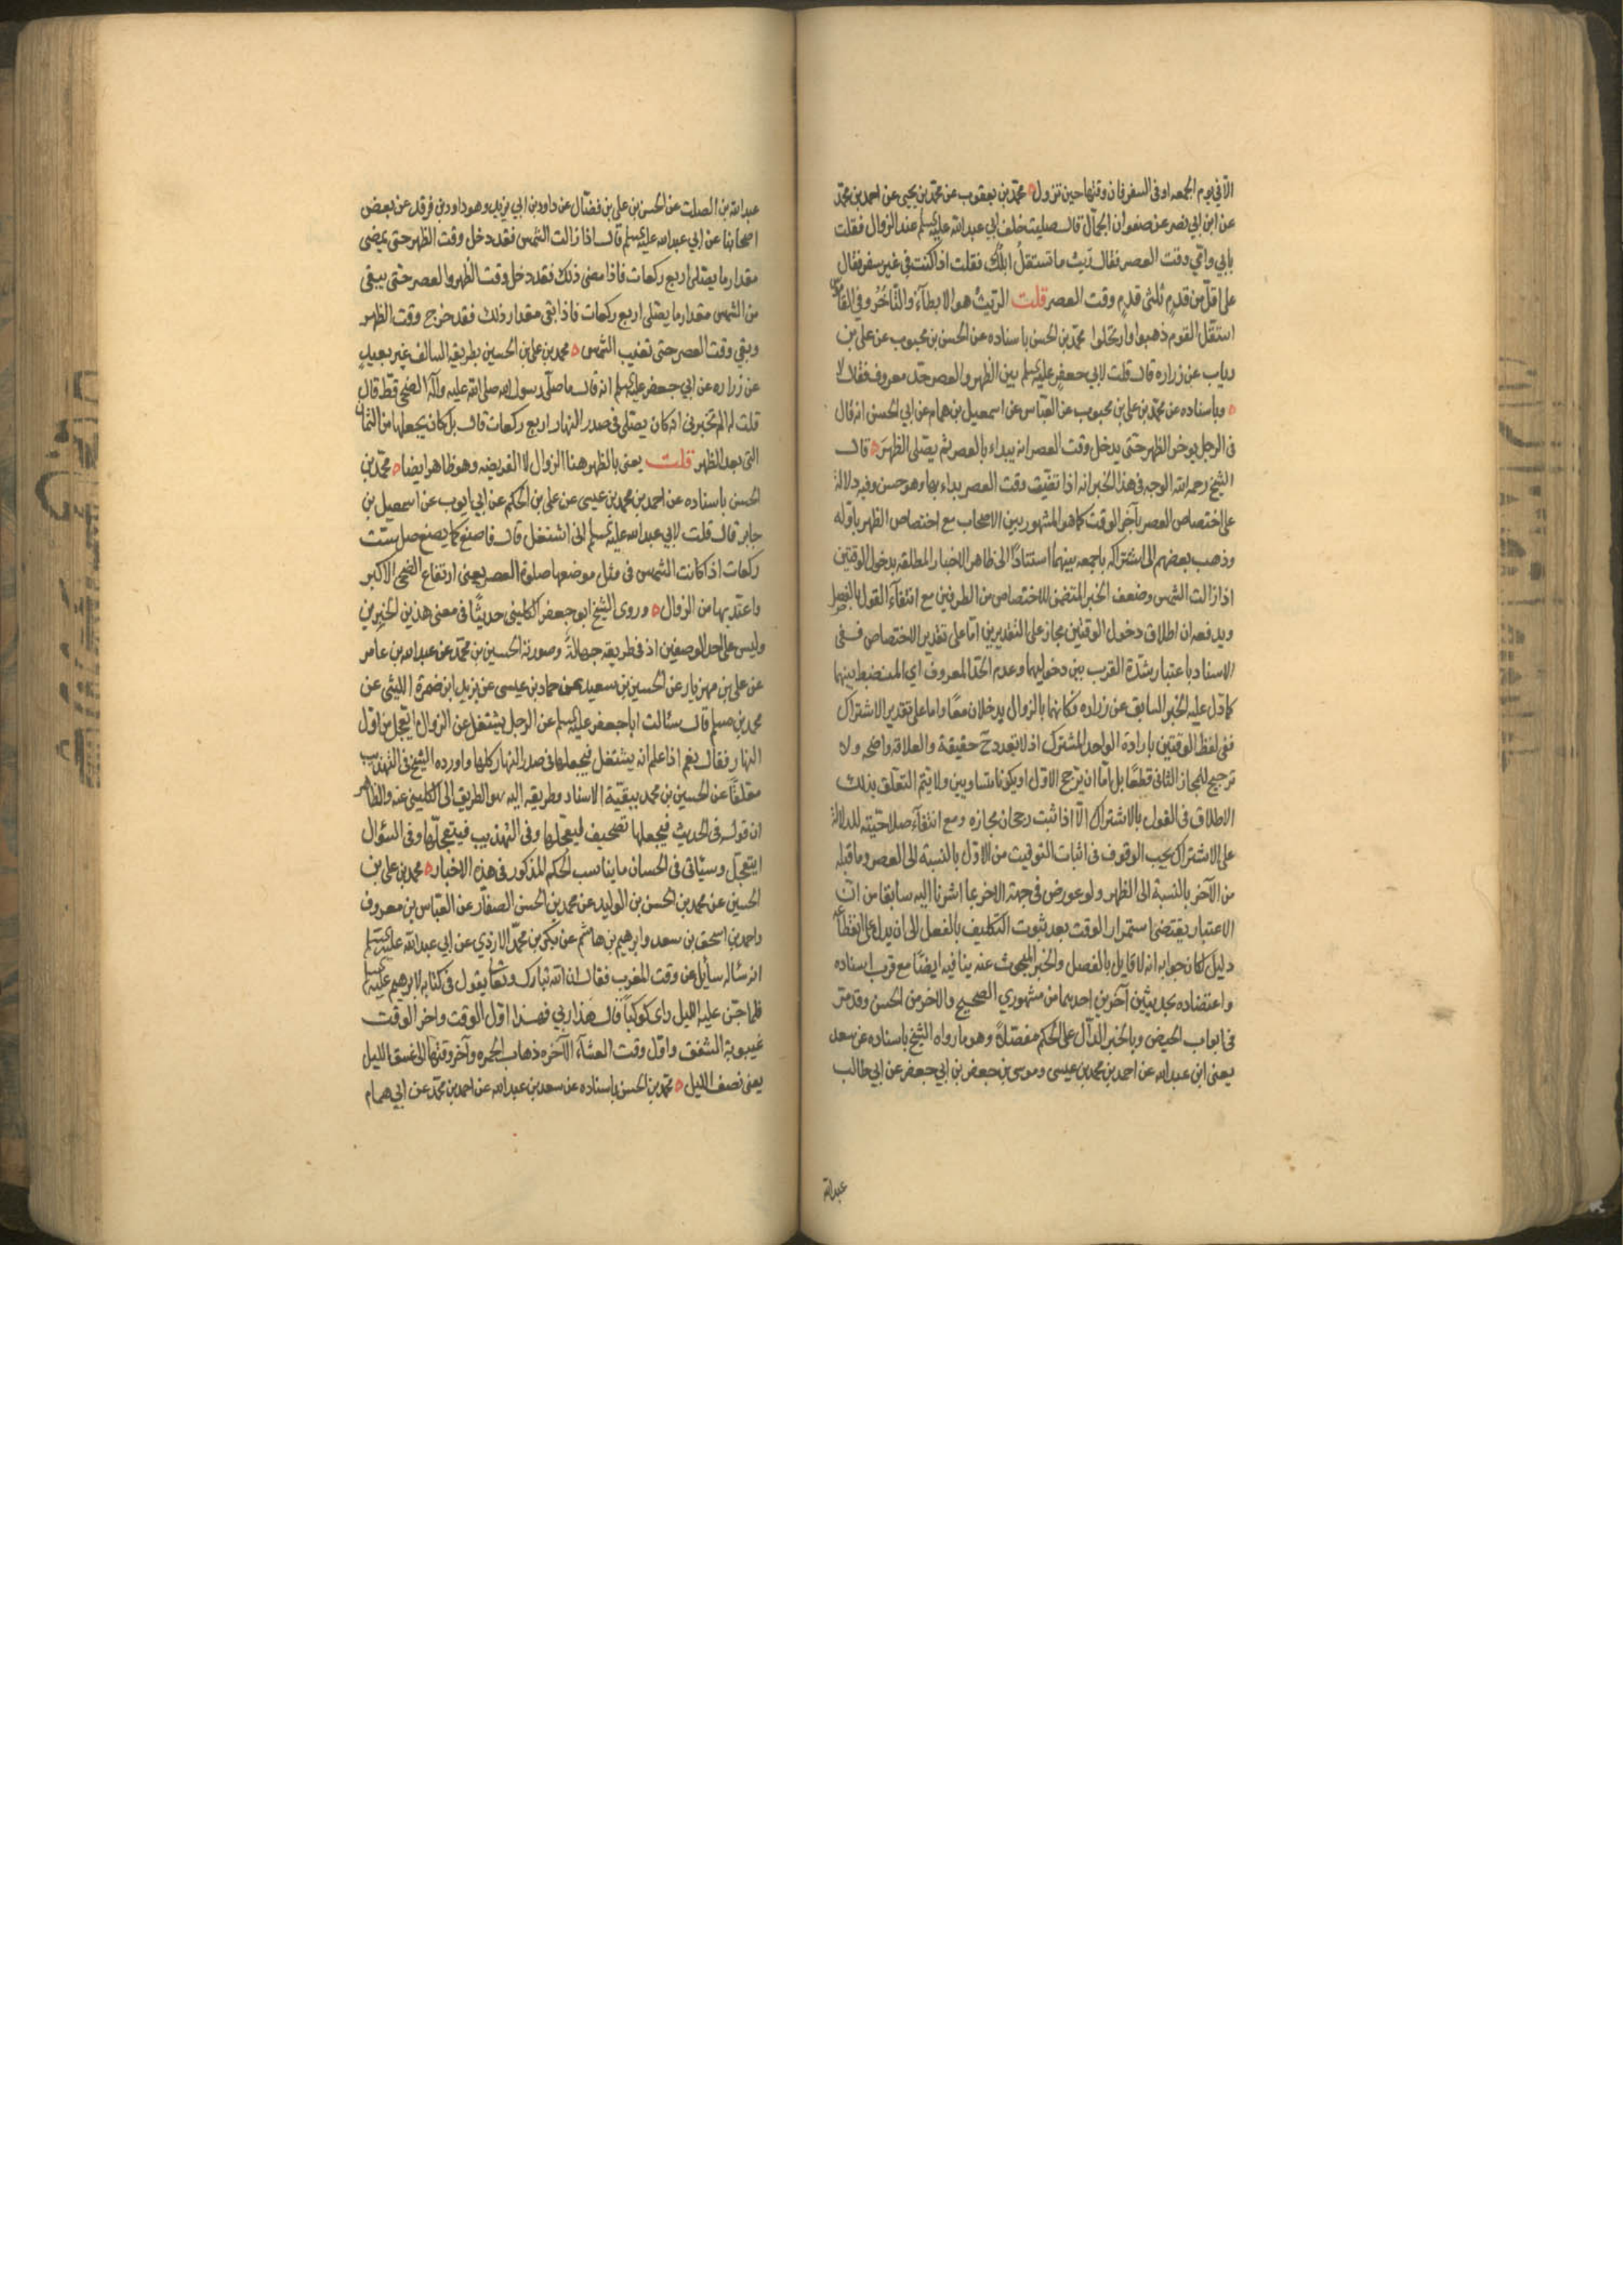 الا في يوم الجمعه او في السفر فان وقتها حين تزول ه محمد بن يعقوب عن محمد بن يحيى عن احمد بن محمد
عن ابن ابي نصر عن صفوان الجمال قال صليت خلف ابي عبد الله عليه السلم عند الزوال فقلت
بابي وامي وقت العصر فقال ريث ما تستقل ابلك فقلت اذا كنت في غير سفر فقال
على اقل من قدم ثلثى قدم وقت العصر قلت الريث هو الابطآء والتأخر وفي القاموس
استقل القوم ذهبوا وارتحلوا محمد بن الحسن باسناده عن الحسن بن محبوب عن على بن
رياب عن زراره قال قلت لابي جعفر عليه السلم بين الظهر والعصر حد معروف فقال لا
ه وباسناده عن محمد بن على بن محبوب عن العباس عن اسمعيل بن همام عن ابي الحسن انه قال
فى الرجل يوخر الظهر حتى يدخل وقت العصر انه يبداء بالعصر ثم يصلى الظهر ه قال
الشيخ رحمه الله الوجه فى هذا الخبر انه اذا تضيق وقت العصر بداء بها وهو حسن وفيه دلالة
على اختصاص العصر بآخر الوقت كما هو المشهور بين الاصحاب مع اختصاص الظهر باوله
وذهب بعضهم الى اشتراكه باجمعه بينهما استنادا الى ظاهر الاخبار المطلقه بدخول الوقتين
اذا زالت الشمس وضعف الخبر المتضمن للاختصاص من الطرفين مع انتفاء القول بالفصل
ويدفعه ان اطلاق دخول الوقتين مجاز على التقديرين اما على تقدير الاختصاص ففى
الاسناد باعتبار شدة القرب بين دخوليهما وعدم الحد المعروف اي المنضبط بينهما
كما دل عليه الخبر السابق عن زراره فكانهما بالزوال يدخلان معا واما على تقدير الاشتراك
ففى لفظ الوقتين بارادة الواحد المشترك اذ لا تعدد ح حقيقة والعلاقة واضحه ولا
ترجيح للمجاز الثانى قطعا بل اما ان يترجح الاول او يكونا متساويين ولا يتم التعلق بذلك
الاطلاق فى القول بالاشتراك الا اذا ثبت رجحان مجازه ومع انتفاء صلاحيته للدلالة
على الاشتراك يجب الوقوف فى اثبات التوقيت من الاول بالنسبة الى العصر وما قبله
من الآخر بالنسبة الى الظهر ولو عورض فى جهة الاخر بما اشرنا اليه سابقا من ان
الاعتبار يقتضى استمرار الوقت بعد ثبوت التكليف بالفعل الى ان يدل على انقطاعه
دليل لكان جوابه انه لا قايل بالفصل والخبر المبحوث عنه ينافيه ايضا مع قرب اسناده
واعتضاده بحديثين آخرين احدهما من مشهوري الصحيح والاخر من الحسن وقد مر
فى ابواب الحيض وبالخبر الدآل على الحكم مفصلا وهو ما رواه الشيخ باسناده عن سعد
يعنى ابن عبد الله عن احمد بن محمد بن عيسى وموسى بن جعفر بن ابي جعفر عن ابي طالب
عبد الله
عبد الله بن الصلت عن الحسن بن على بن فضال عن داود بن ابي يزيد وهو داود بن فرقد عن بعض
اصحابنا عن ابي عبد الله عليه السلم قال اذا زالت الشمس فقد دخل وقت الظهر حتى يمضى
مقدار ما يصلى اربع ركعات فاذا مضى ذلك فقد دخل وقت الظهر والعصر حتى يبقى
من الشمس مقدار ما يصلى اربع ركعات فاذا بقى مقدار ذلك فقد خرج وقت الظهر
وبقى وقت العصر حتى تغيب الشمس ه محمد بن على بن الحسين بطريقه السالف غير بعيد
عن زراره عن ابي جعفر عليه السلم انه قال ما صلى رسول الله صلى الله عليه وآله الضحى قط قال
قلت له الم تخبرنى انه كان يصلى فى صدر النهار اربع ركعات قال بل كان يجعلها من الثمان
التى بعد الظهر قلت يعنى بالظهر هنا الزوال لا الفريضه وهو ظاهر ايضا ه محمد بن
الحسن باسناده عن احمد بن محمد بن عيسى عن على بن الحكم عن ابي ايوب عن اسمعيل بن
جابر قال قلت لابي عبد الله عليه السلم انى اشتغل قال فاصنع كما يصنع صل ست
ركعات اذا كانت الشمس فى مثل موضعها صلوة العصر يعنى ارتفاع الضحى الاكبر
واعتد بها من الزوال ه وروى الشيخ ابو جعفر الكلينى حديثا فى معنى هذين الخبرين
وليس على احد الوصفين اذ فى طريقه جهالة وصورته الحسين بن محمد عن عبد الله بن عامر
عن على بن مهزيار عن الحسين بن سعيد عن حماد بن عيسى عن يزيد ابن ضمرة الليثى عن
محمد بن مسلم قال سئالت ابا جعفر عليه السلم عن الرجل يشتغل عن الزوال ايتعجل من اول
النهار فقال نعم اذا علم انه يشتغل فيجعلها فى صدر النهار كلها واورده الشيخ فى التهذيب
معلقا عن الحسين بن محمد ببقية الاسناد وطريقه اليه هو الطريق الى الكلينى عنه والظاهر
ان قوله فى الحديث فيجعلها تصحيف ليعجلها وفى التهذيب فيتعجلها وفى السؤال
ايتعجل وسيأتى فى الحسان ما يناسب الحكم المذكور فى هذه الاخبار ه محمد بن على بن
الحسين عن محمد بن الحسن بن الوليد عن محمد بن الحسن الصفار عن العباس بن معروف
واحمد بن اسحق بن سعد وابرهيم بن هاشم عن بكر بن محمد الازدي عن ابي عبد الله عليه السلم
انه سئاله سأيل عن وقت المغرب فقال ان الله تبارك وتعالى يقول فى كتابه لابرهيم عليه السلم
فلما جن عليه الليل راى كوكبا قال هذا ربي فهذا اول الوقت واخر الوقت
غيبوبة الشفق واول وقت العشآء الآخره ذهاب الحمره وآخر وقتها الى غسق الليل
يعنى نصف الليل ه محمد بن الحسن باسناده عن سعد بن عبد الله عن احمد بن محمد عن ابي همام